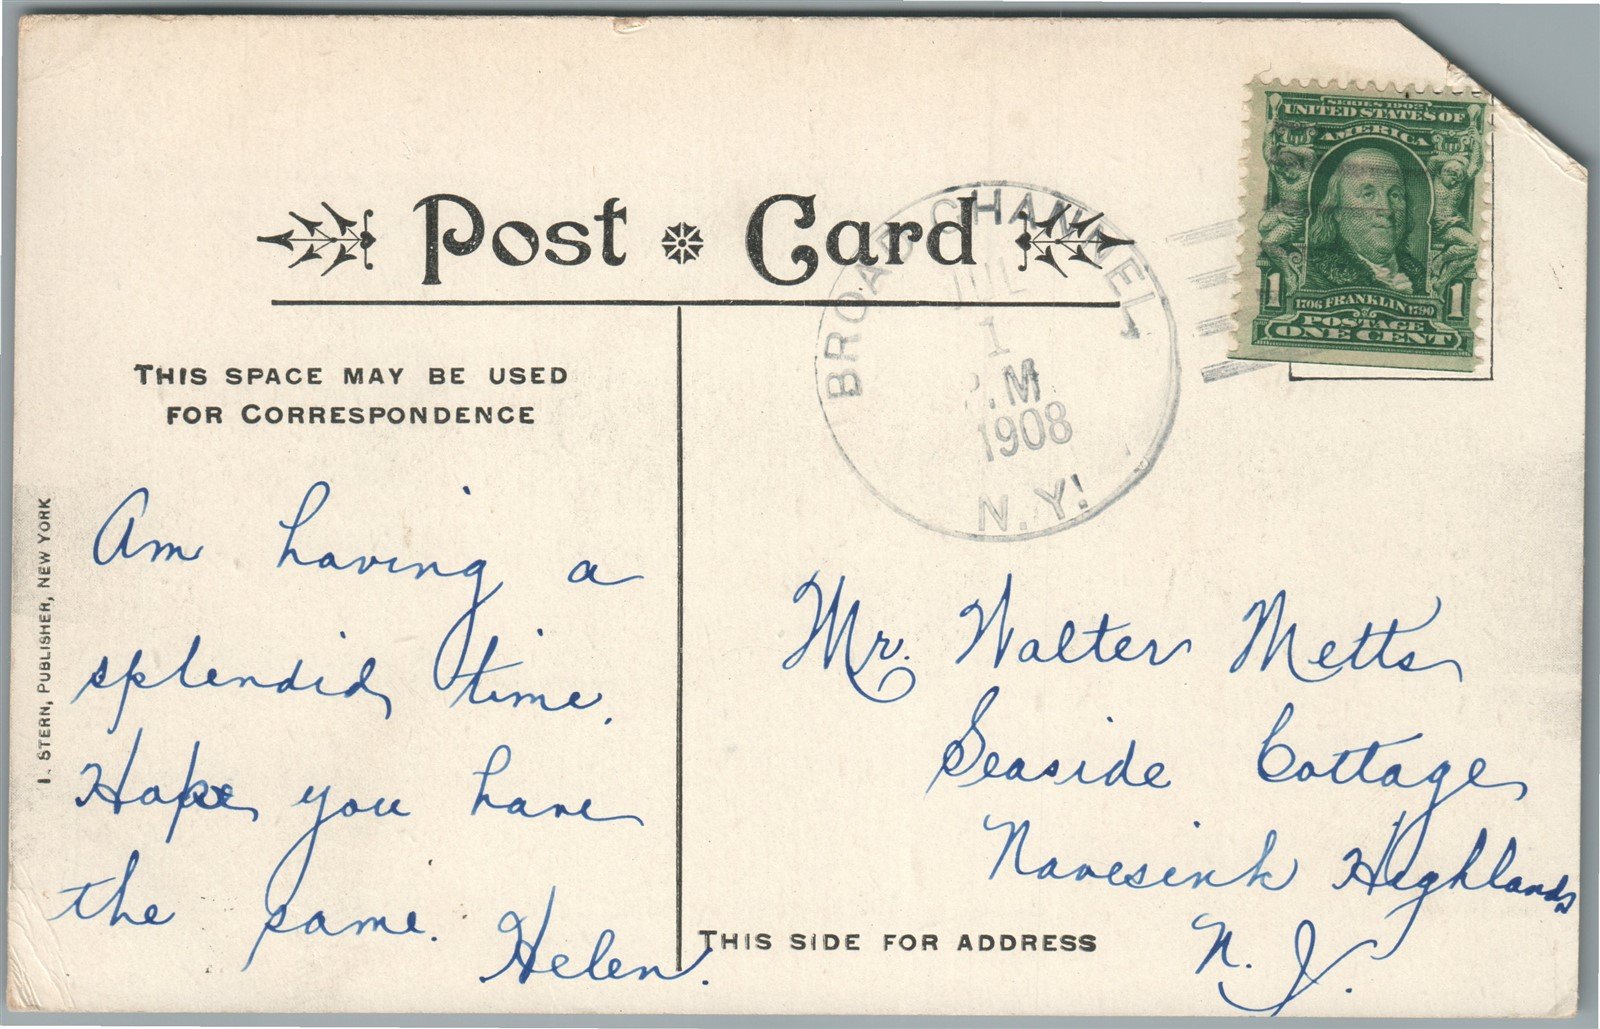 Post Card
THIS SPACE MAY BE USED
FOR CORRESPONDENCE
Am having a
splendid time.
Hope you have
the same.
Helen.
I. STERN, PUBLISHER, NEW YORK
BROAD CHANNEL,
JUL
1
P.M
1908
N.Y!
SERIES 1902
UNITED STATES OF
AMERICA
1 1
1706 FRANKLIN 1790
POSTAGE
ONE CENT
Mr. Walter Metts
Seaside Cottage
Navesink Highlands
N. J.
THIS SIDE FOR ADDRESS